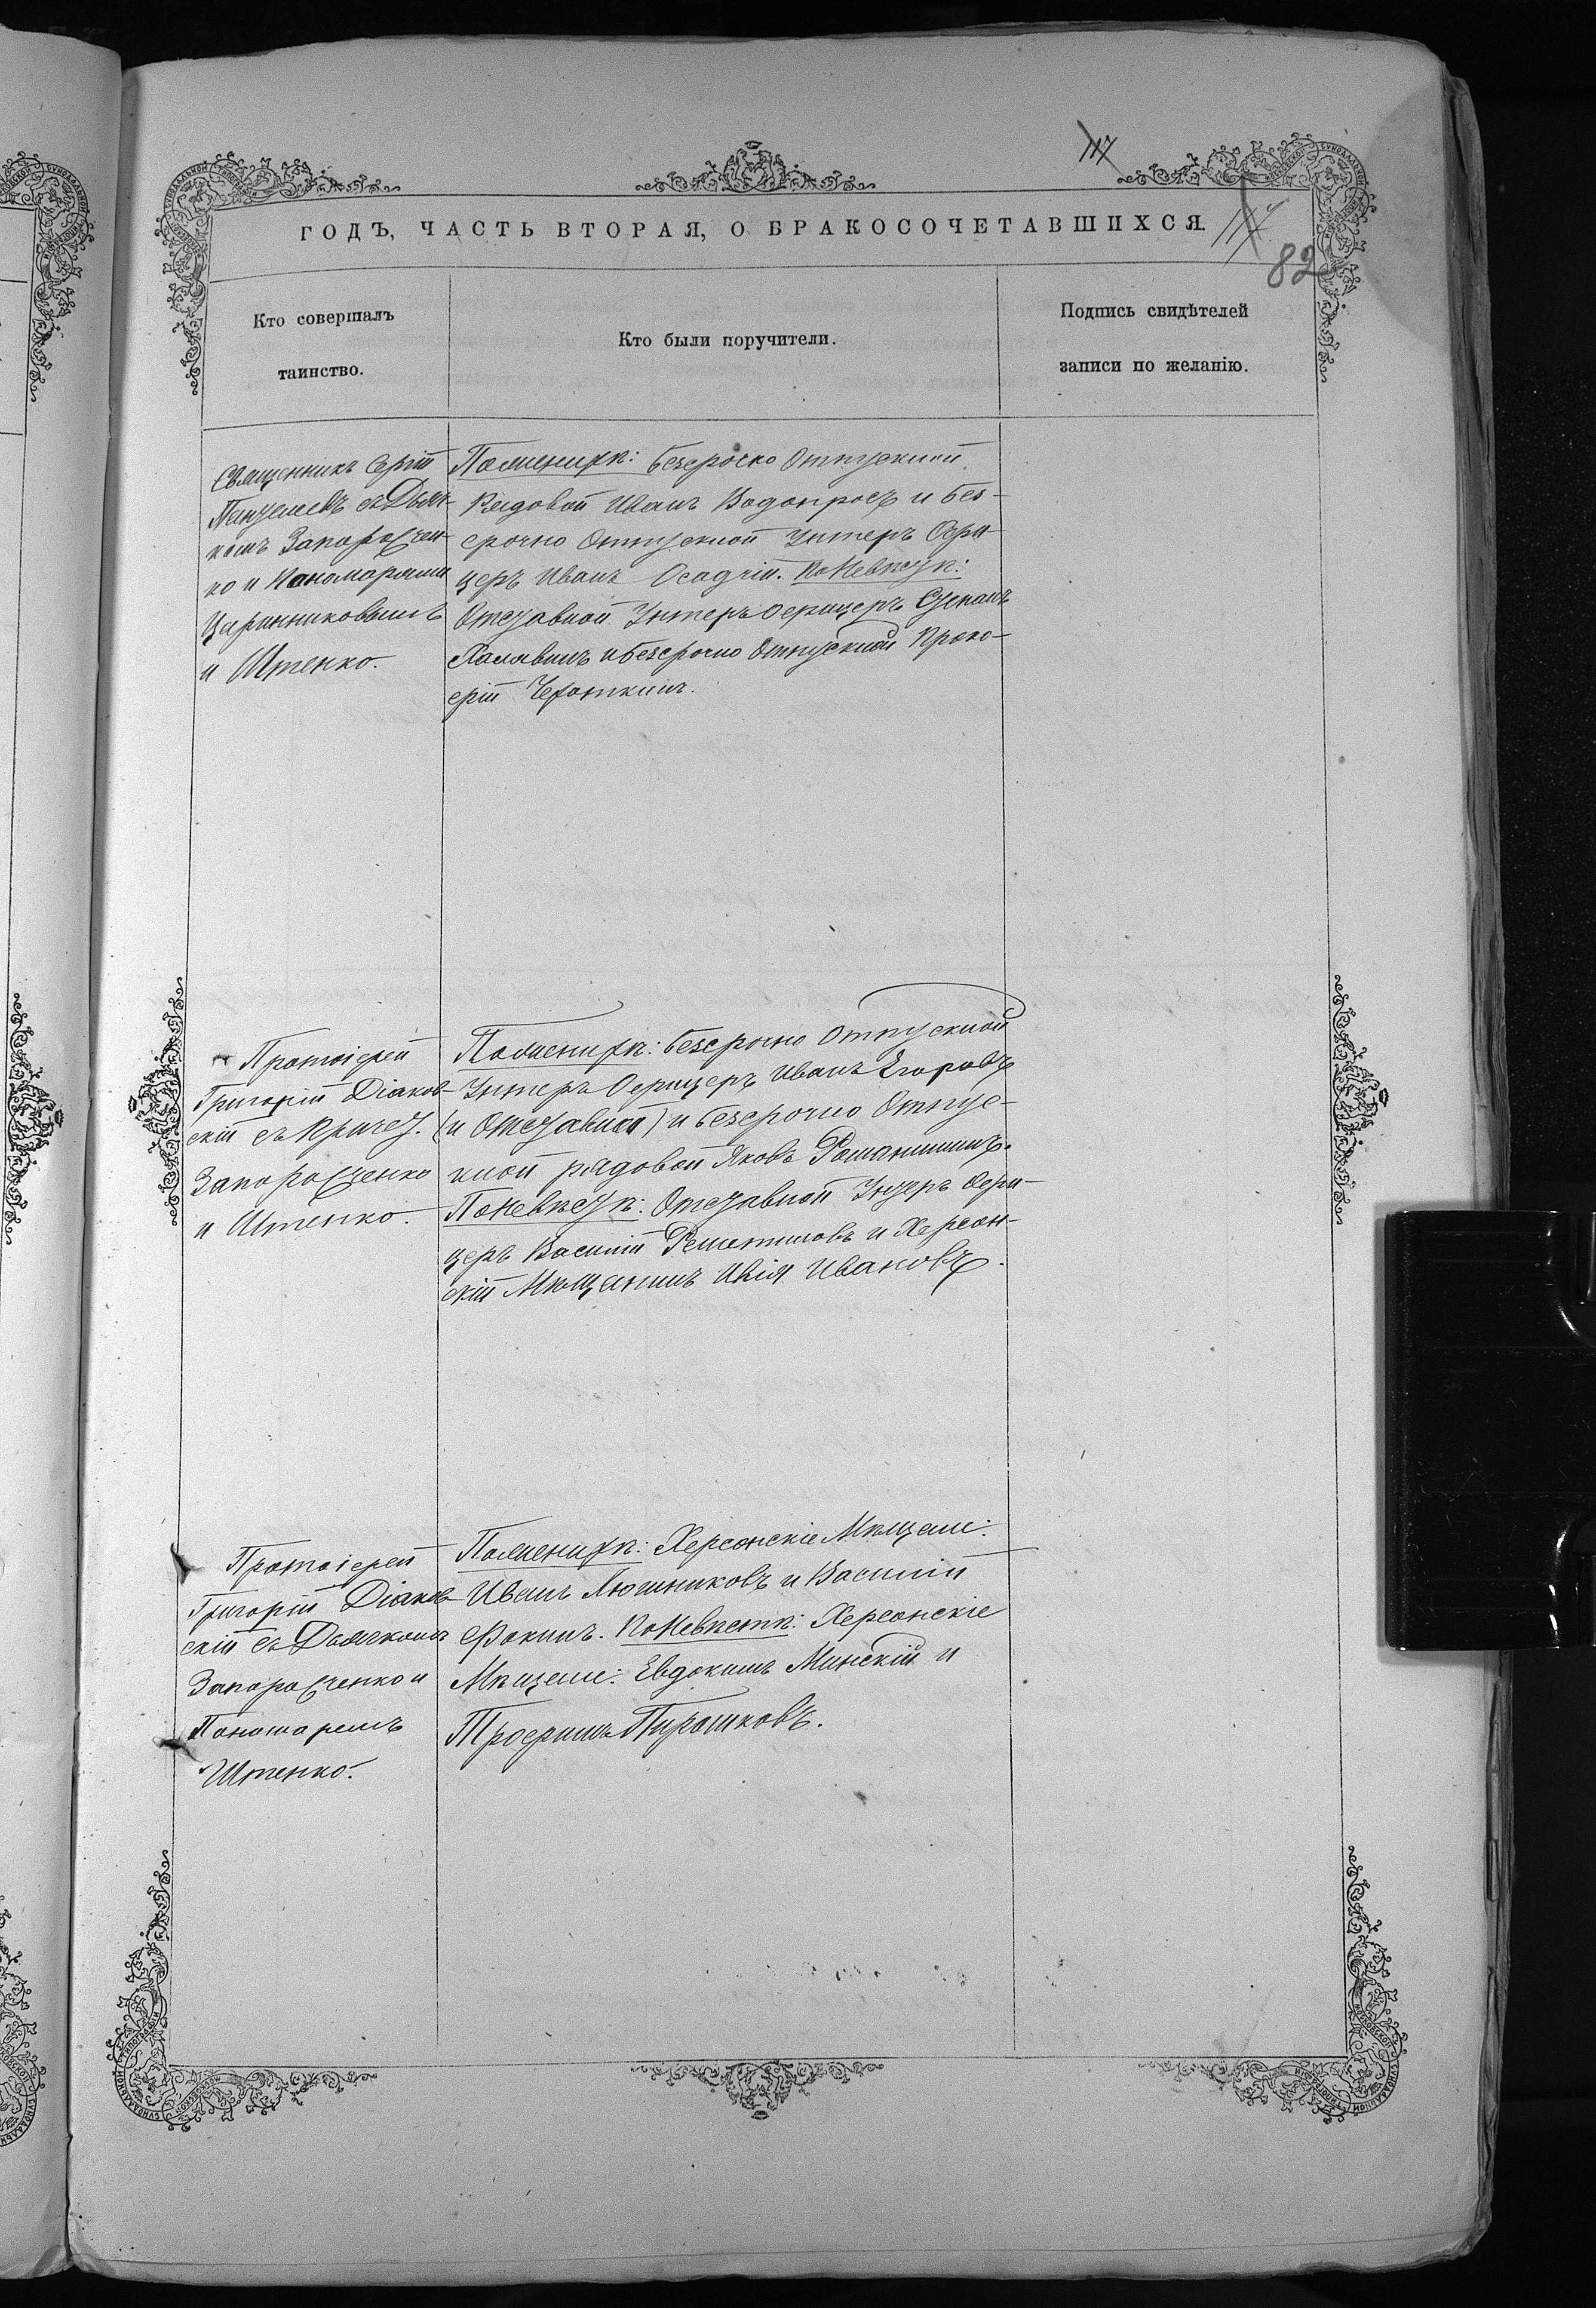 117
ГОДЪ, ЧАСТЬ ВТОРАЯ, О БРАКОСОЧЕТАВШИХСЯ.
117
82
Кто совершалъ
таинство.
Кто были поручители.
Подпись свидѣтелей
записи по желанію.
Священникъ Сергій
съ Дьяч-
комъ Запорожчен-
ко и Пономарями
Царинниковымъ
и Штенко.
По женихѣ: безсрочно Отпускной
Рядовой Иванъ Водопросъ и без-
срочно Отпускной Унтеръ Офи-
церъ Иванъ Осадчій. По Невѣсте:
Отставной Унтеръ Офицеръ Степанъ
Халявинъ и безсрочно Отпускной Проко-
фій Чефоткинъ.
Протоіерей
Григорій Діаков-
скій съ Причет.
Запорожченко
и Штенко.
По женихѣ: безсрочно Отпускной
Унтеръ Офицеръ Иванъ Егоровъ
(и Отставной) и безсрочно Отпус-
кной рядовой Яковъ Романишинъ.
По Невѣсте: Отставной Унтеръ Офи-
церъ Василій Решетиловъ и Херсон-
скій Мѣщанинъ Илія Ивановъ.
Протоіерей
Григорій Діаков-
скій съ Дьячкомъ
Запорожченко и
Пономаремъ
Штенко.
По женихѣ: Херсонскіе Мѣщане:
Иванъ Лютниковъ и Василій
Фокинъ. По Невѣстѣ: Херсонскіе
Мѣщане: Евдокимъ Минскій и
Трофимъ Пирожковъ.